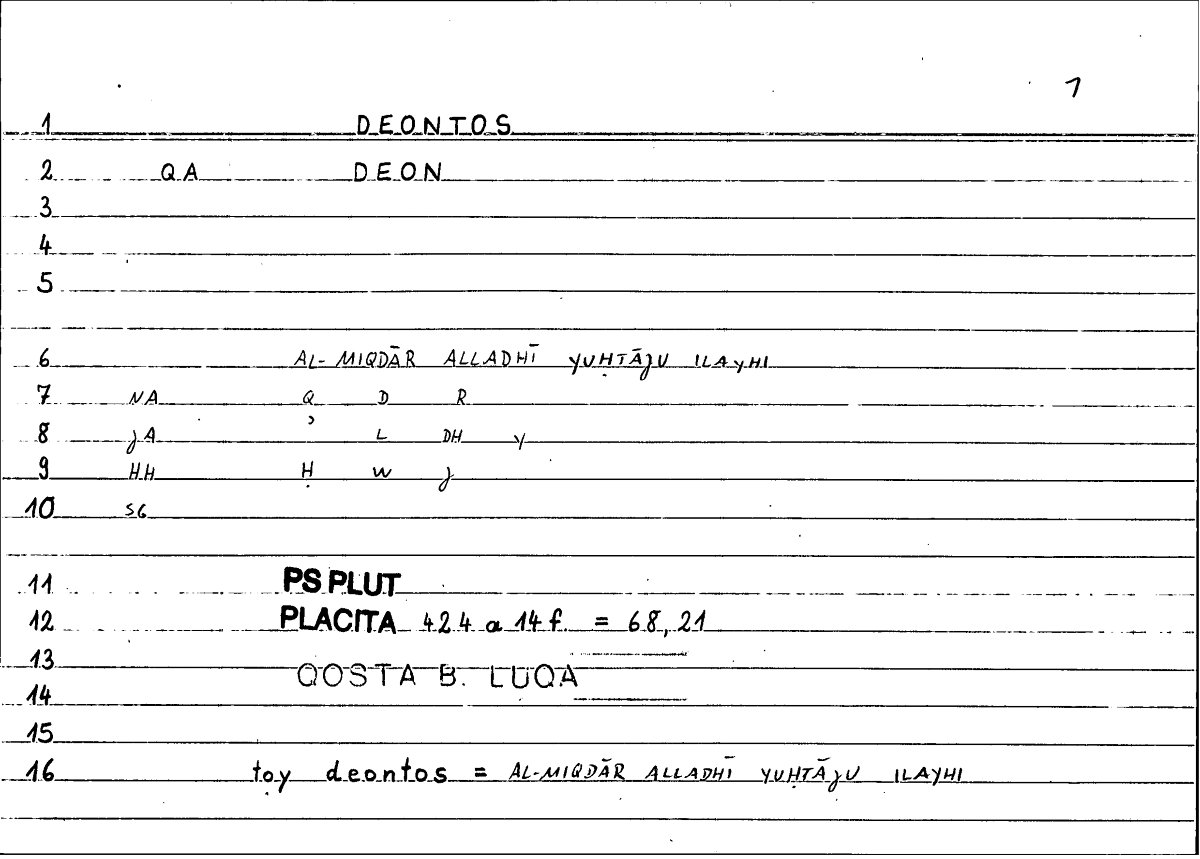 1
1 DEONTOS
2 QA DEON
3
4
5
6 AL-MIQDĀR ALLADHĪ YUḤTĀJU ILAYHI
7 NA Q D R
8 JA ʾ L DH Y
9 HH Ḥ W J
10 SG
11 PS PLUT
12 PLACITA 424 a 14 f. = 68,21
13 QOSTA B. LUQA
14
15
16 toy deontos = AL-MIQDĀR ALLADHĪ YUḤTĀJU ILAYHI